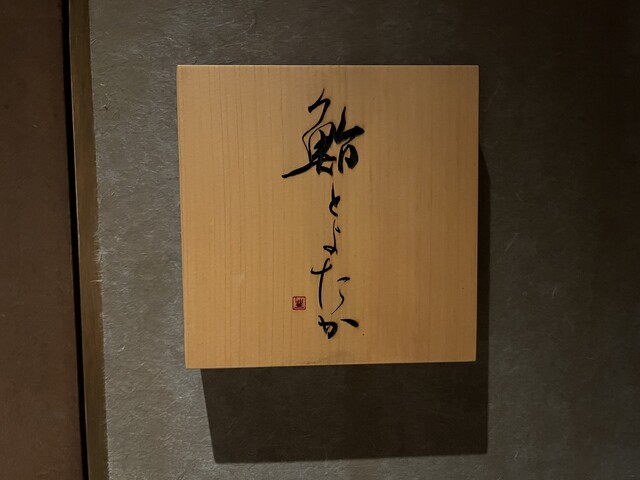 鮨とよたか